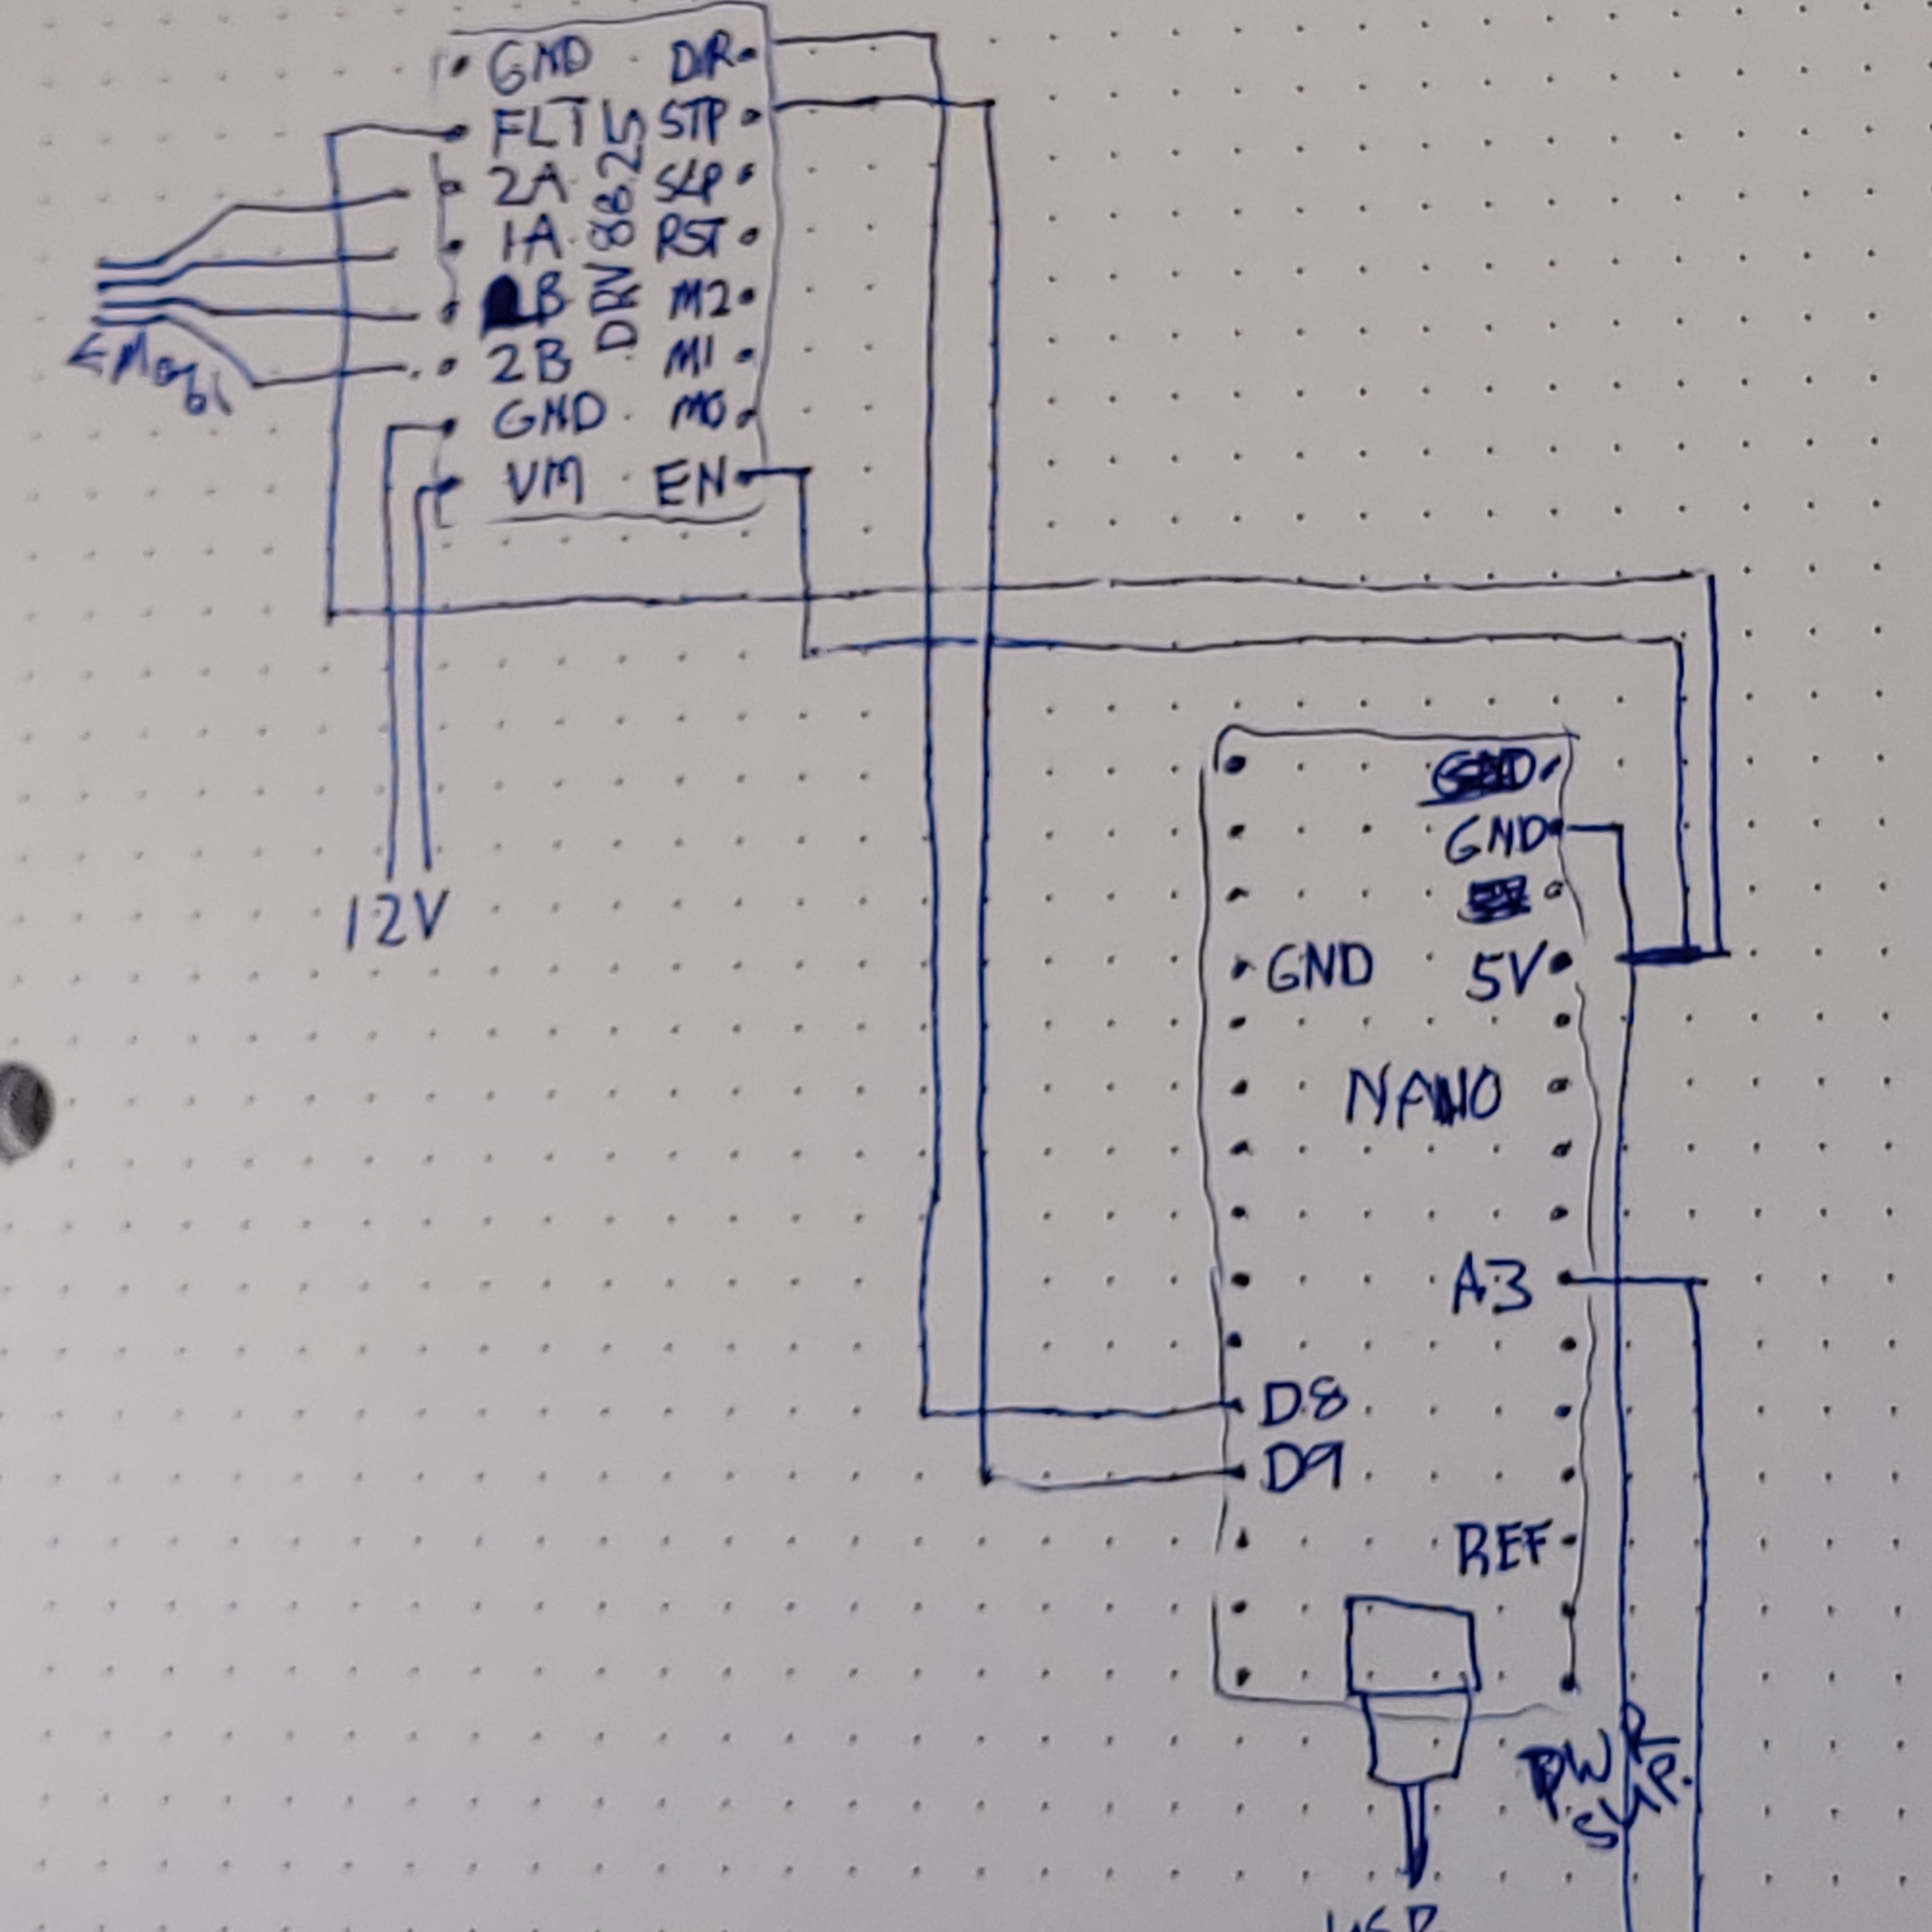 GND DIR
FLT STP
2A SLP
1A RST
1B M2
2B M1
GND M0
VM EN
DRV8825
<Motor
12V
GND
GND
GND 5V
NANO
A3
D8
D9
REF
PWR
SUP.
USB